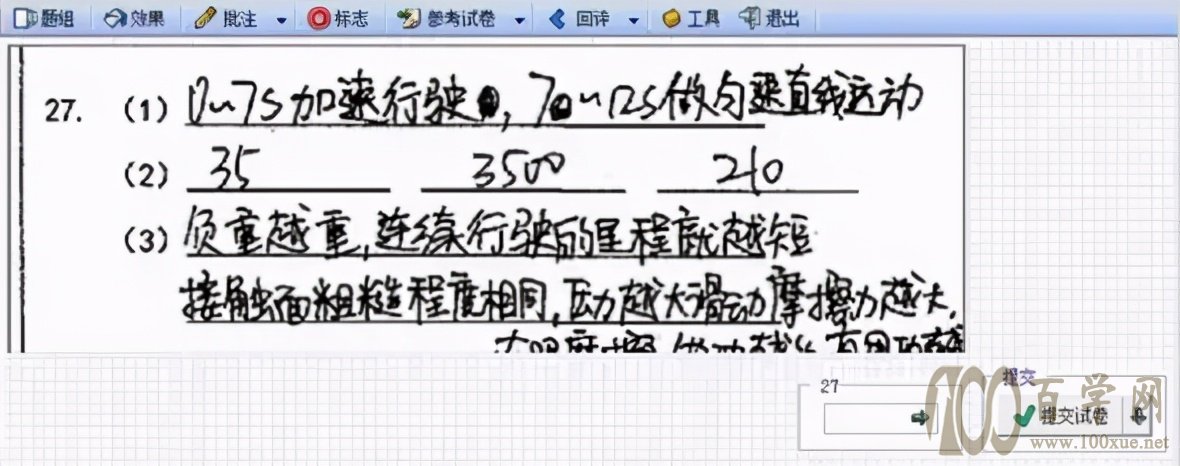 题组 效果 批注 标志 参考试卷 回评 工具 退出
27. (1) 0~7s加速行驶, 7~12s做匀速直线运动
(2) 35 3500 210
(3) 负重越重,连续行驶的里程就越短
接触面粗糙程度相同,压力越大滑动摩擦力越大,
27
提交
提交试卷
100百学网
www.100xue.net